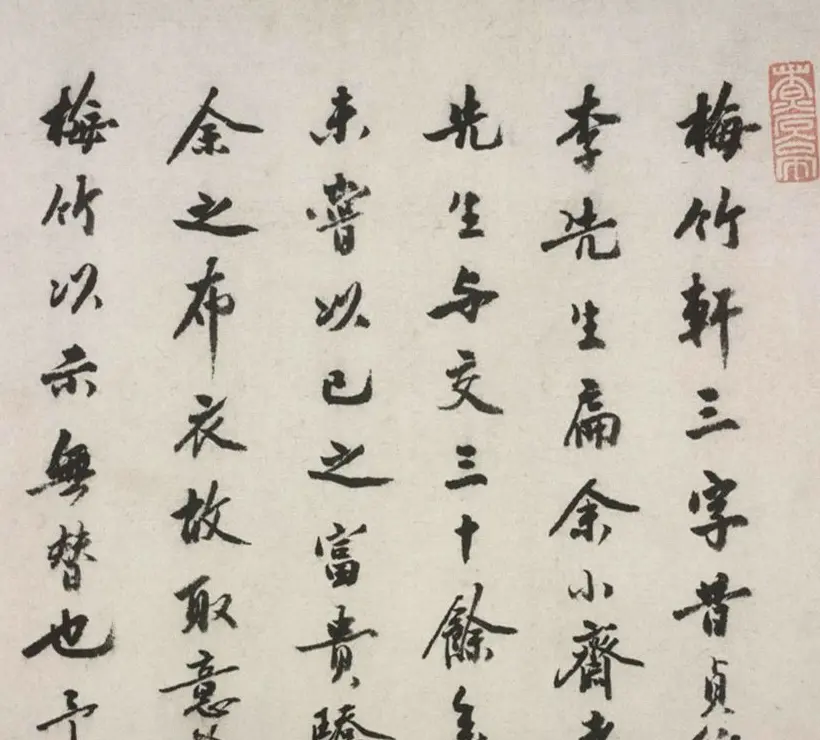 梅竹軒三字昔貞
李先生扁余小齋
先生与交三十餘年
未嘗以己之富貴驕
余之布衣故取意
梅竹以示無替也予